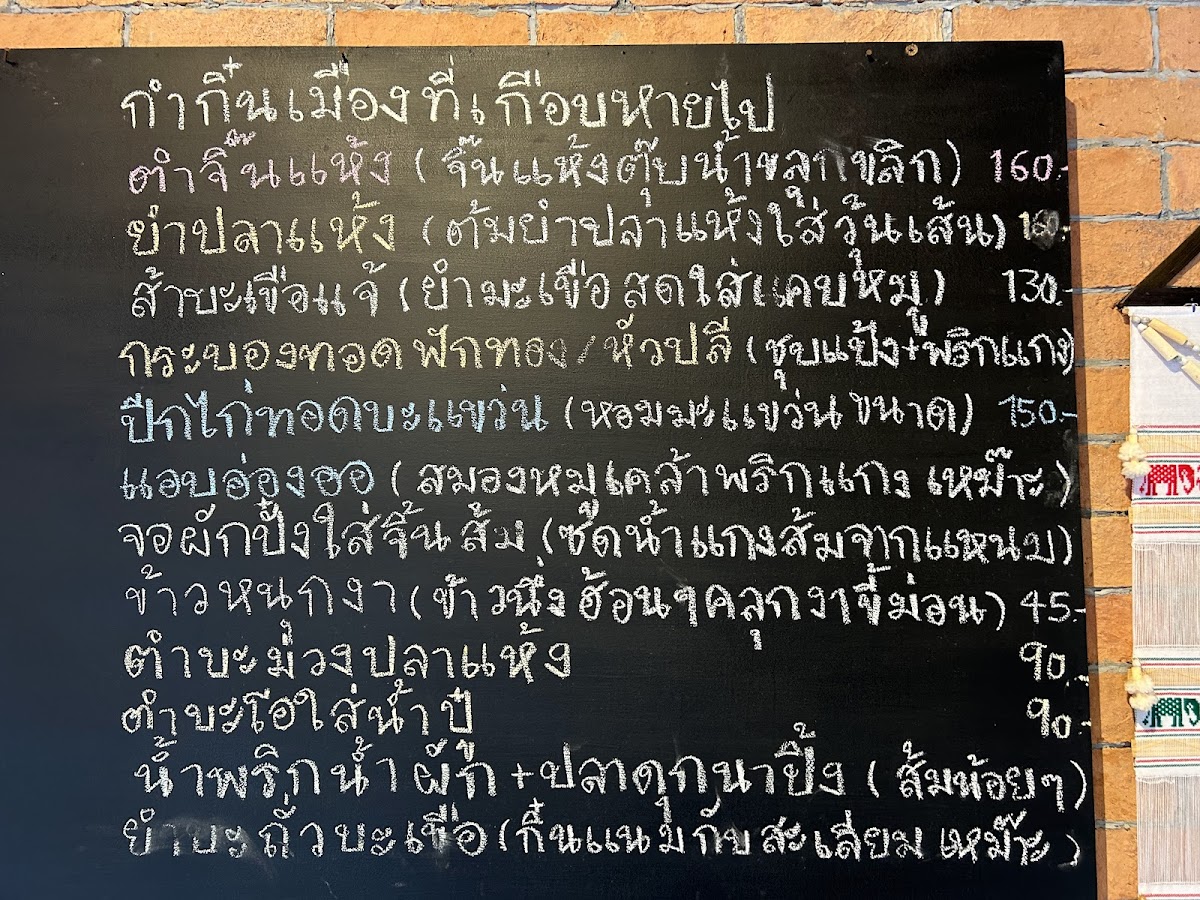 กำกิ๋นเมืองที่เกือบหายไป
ตำจิ๊นแห้ง (จิ๊นแห้งตุ๊บน้ำขลุกขลิก) 160.-
ยำปลาแห้ง (ต้มยำปลาแห้งใส่วุ้นเส้น)
ส้าบะเขือแจ้ (ยำมะเขือสดใส่แคบหมู) 130.-
กระบองทอดฟักทอง/หัวปลี (ชุบแป้ง+พริกแกง)
ปีกไก่ทอดบะแขว่น (หอมมะแขว่นขนาด) 150.-
แอบอ่องออ (สมองหมูเคล้าพริกแกง เหม๊าะ)
จอผักปั๋งใส่จิ้นส้ม (ซดน้ำแกงส้มจากแหนบ)
ข้าวหนุกงา (ข้าวนึ่งฮ้อนๆคลุกงาขี้ม่อน) 45.-
ตำบะม่วงปลาแห้ง 90.-
ตำบะโอใส่น้ำปู๋ 90.-
น้ำพริกน้ำผัก+ปลาดุกนาปิ้ง (ส้มน้อยๆ)
ยำบะถั่วบะเขือ (กิ๋นแนมกับสะเลียม เหม๊าะ)